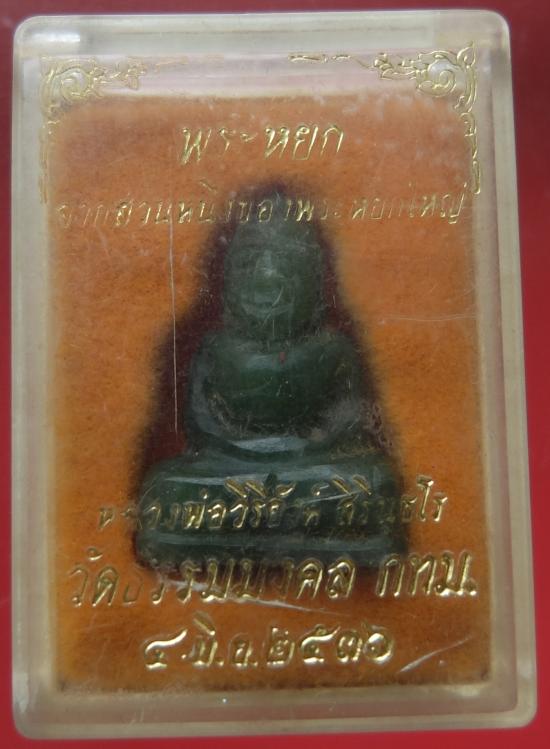 พระหยก
จากส่วนหนึ่งของพระหยกใหญ่
หลวงพ่อวิริยังค์ สิรินฺธโร
วัดธรรมมงคล กทม.
๔ มี.ค. ๒๕๓๖